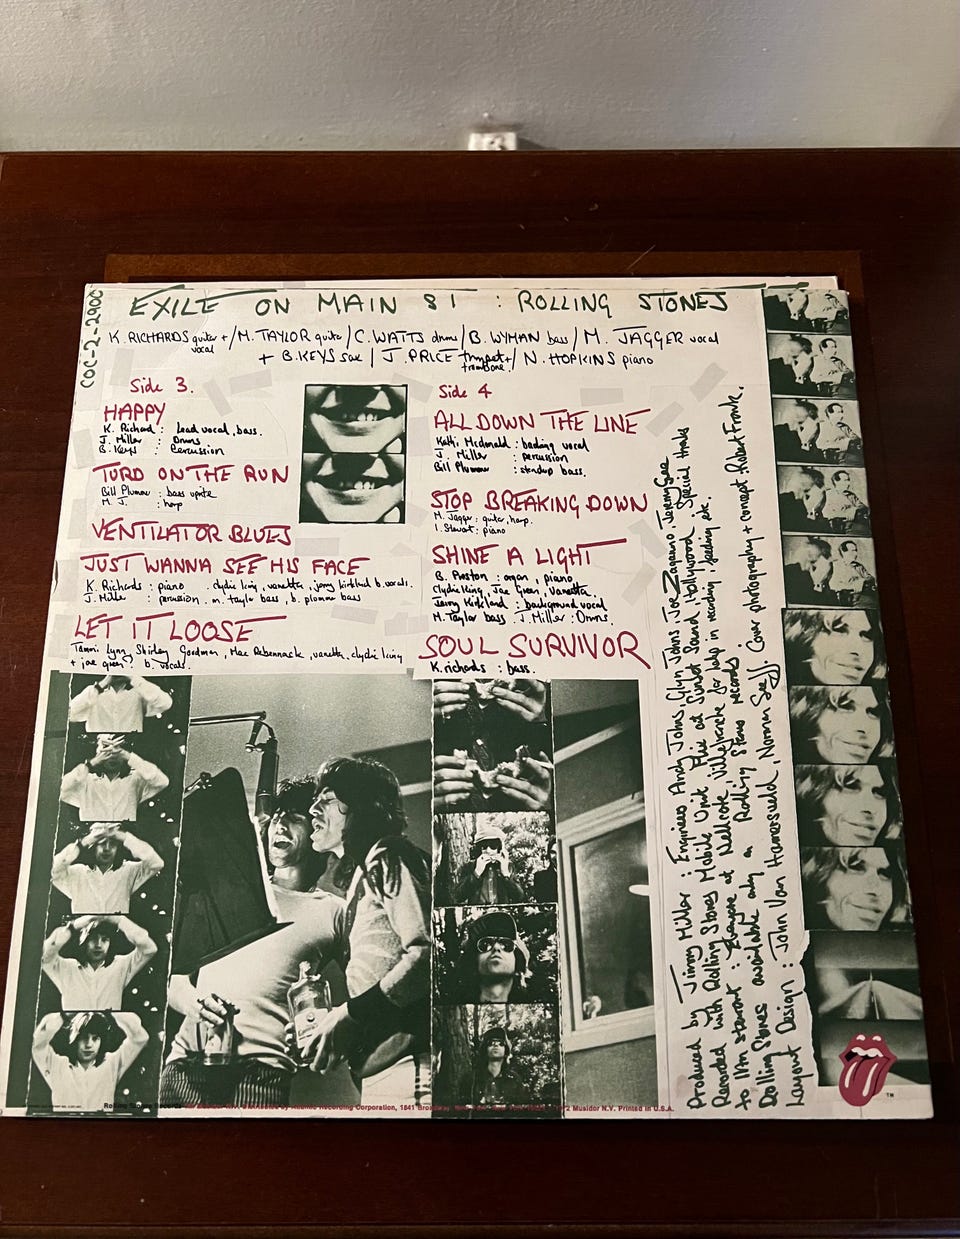 COC-2-2900
EXILE ON MAIN ST : ROLLING STONES
K. RICHARDS guitar + vocal / M. TAYLOR guitar / C. WATTS drums / B. WYMAN bass / M. JAGGER vocal
+ B. KEYS sax / J. PRICE trumpet + trombone / N. HOPKINS piano
Side 3.
HAPPY
K. Richard : Lead vocal, bass.
J. Miller : Drums
B. Keys : Percussion
TURD ON THE RUN
Bill Plummer : bass uprite
M. J. : harp
VENTILATOR BLUES
JUST WANNA SEE HIS FACE
K. Richards : piano . clydie king, vanetta, jerry kirkland b. vocals.
J. Miller : percussion . m. taylor bass, b. plummer bass
LET IT LOOSE
Tammi Lynn, Shirley Goodman, Mac Rebennack, vanetta, clydie king
+ joe green : b. vocals.
Side 4
ALL DOWN THE LINE
Kathi Mcdonald : backing vocal
J. Miller : percussion
Bill Plummer : standup bass.
STOP BREAKING DOWN
M. Jagger : guitar, harp.
I. Stewart : piano
SHINE A LIGHT
B. Preston : organ, piano
Clydie King, Joe Green, Vanetta,
Jerry Kirkland : background vocal
M. Taylor bass . J. Miller : Drums.
SOUL SURVIVOR
K. richards : bass.
Produced by Jimmy Miller : Engineers Andy Johns, Glyn Johns, Joe Zaganno, Jeremy Gee
Recorded with Rolling Stones Mobile Unit. Mix at Sunset Sound, Hollywood. Special thanks
to Ian stewart : Everyone at Nellcote, Villefranche for help in recording, feeding etc.
Rolling Stones available only on Rolling Stones records.
Layout Design : John Van Hamersveld, Norman Seeff. Cover photography + concept : Robert Frank.
Recording Corporation, 1841 Broadway, Musidor N.V. Printed in U.S.A.
TM